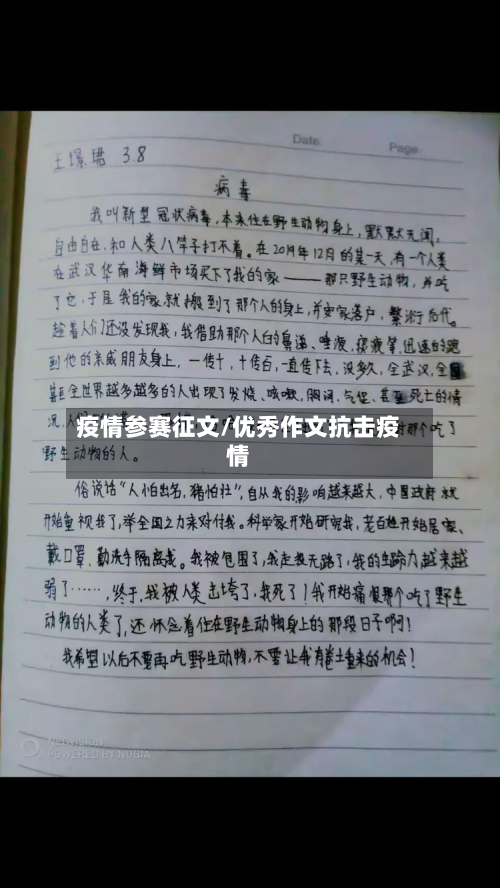 Date.
Page.
王璟珺 3.8
病毒
我叫新型冠状病毒,本来住在野生动物身上,默默无闻,
自由自在,和人类八竿子打不着。在2019年12月的某一天,有一个人类
在武汉华南海鲜市场买下了我的家——那只野生动物,并吃
了它,于是我的家就搬到了那个人的身上,并安家落户,繁衍后代。
趁着人们还没发现我,我借助那个人的鼻涕、唾液、迅速的跑
到他的亲戚朋友身上,一传十,十传百,一直传下去,没多久,全武汉,全国
甚至全世界越来越多的人出现了发烧、咳嗽,胸闷,气促,甚至死亡的情
况,人
那个吃了
疫情参赛征文/优秀作文抗击疫
情
野生动物的人。
俗说话“人怕出名,猪怕壮”,自从我的影响越来越大,中国政府就
开始重视我了,举全国之力来对付我。科学家开始研究我,老百姓开始居家、
戴口罩、勤洗手隔离我。我被包围了,我走投无路了,我的生命力越来越
弱了……,终于,我被人类击垮了,我死了!我开始痛恨那个吃了野生
动物的人类了,还怀念着住在野生动物身上的那段日子啊!
我希望以后不要再吃野生动物,不要让我有卷土重来的机会!
POWERED BY NUBIA